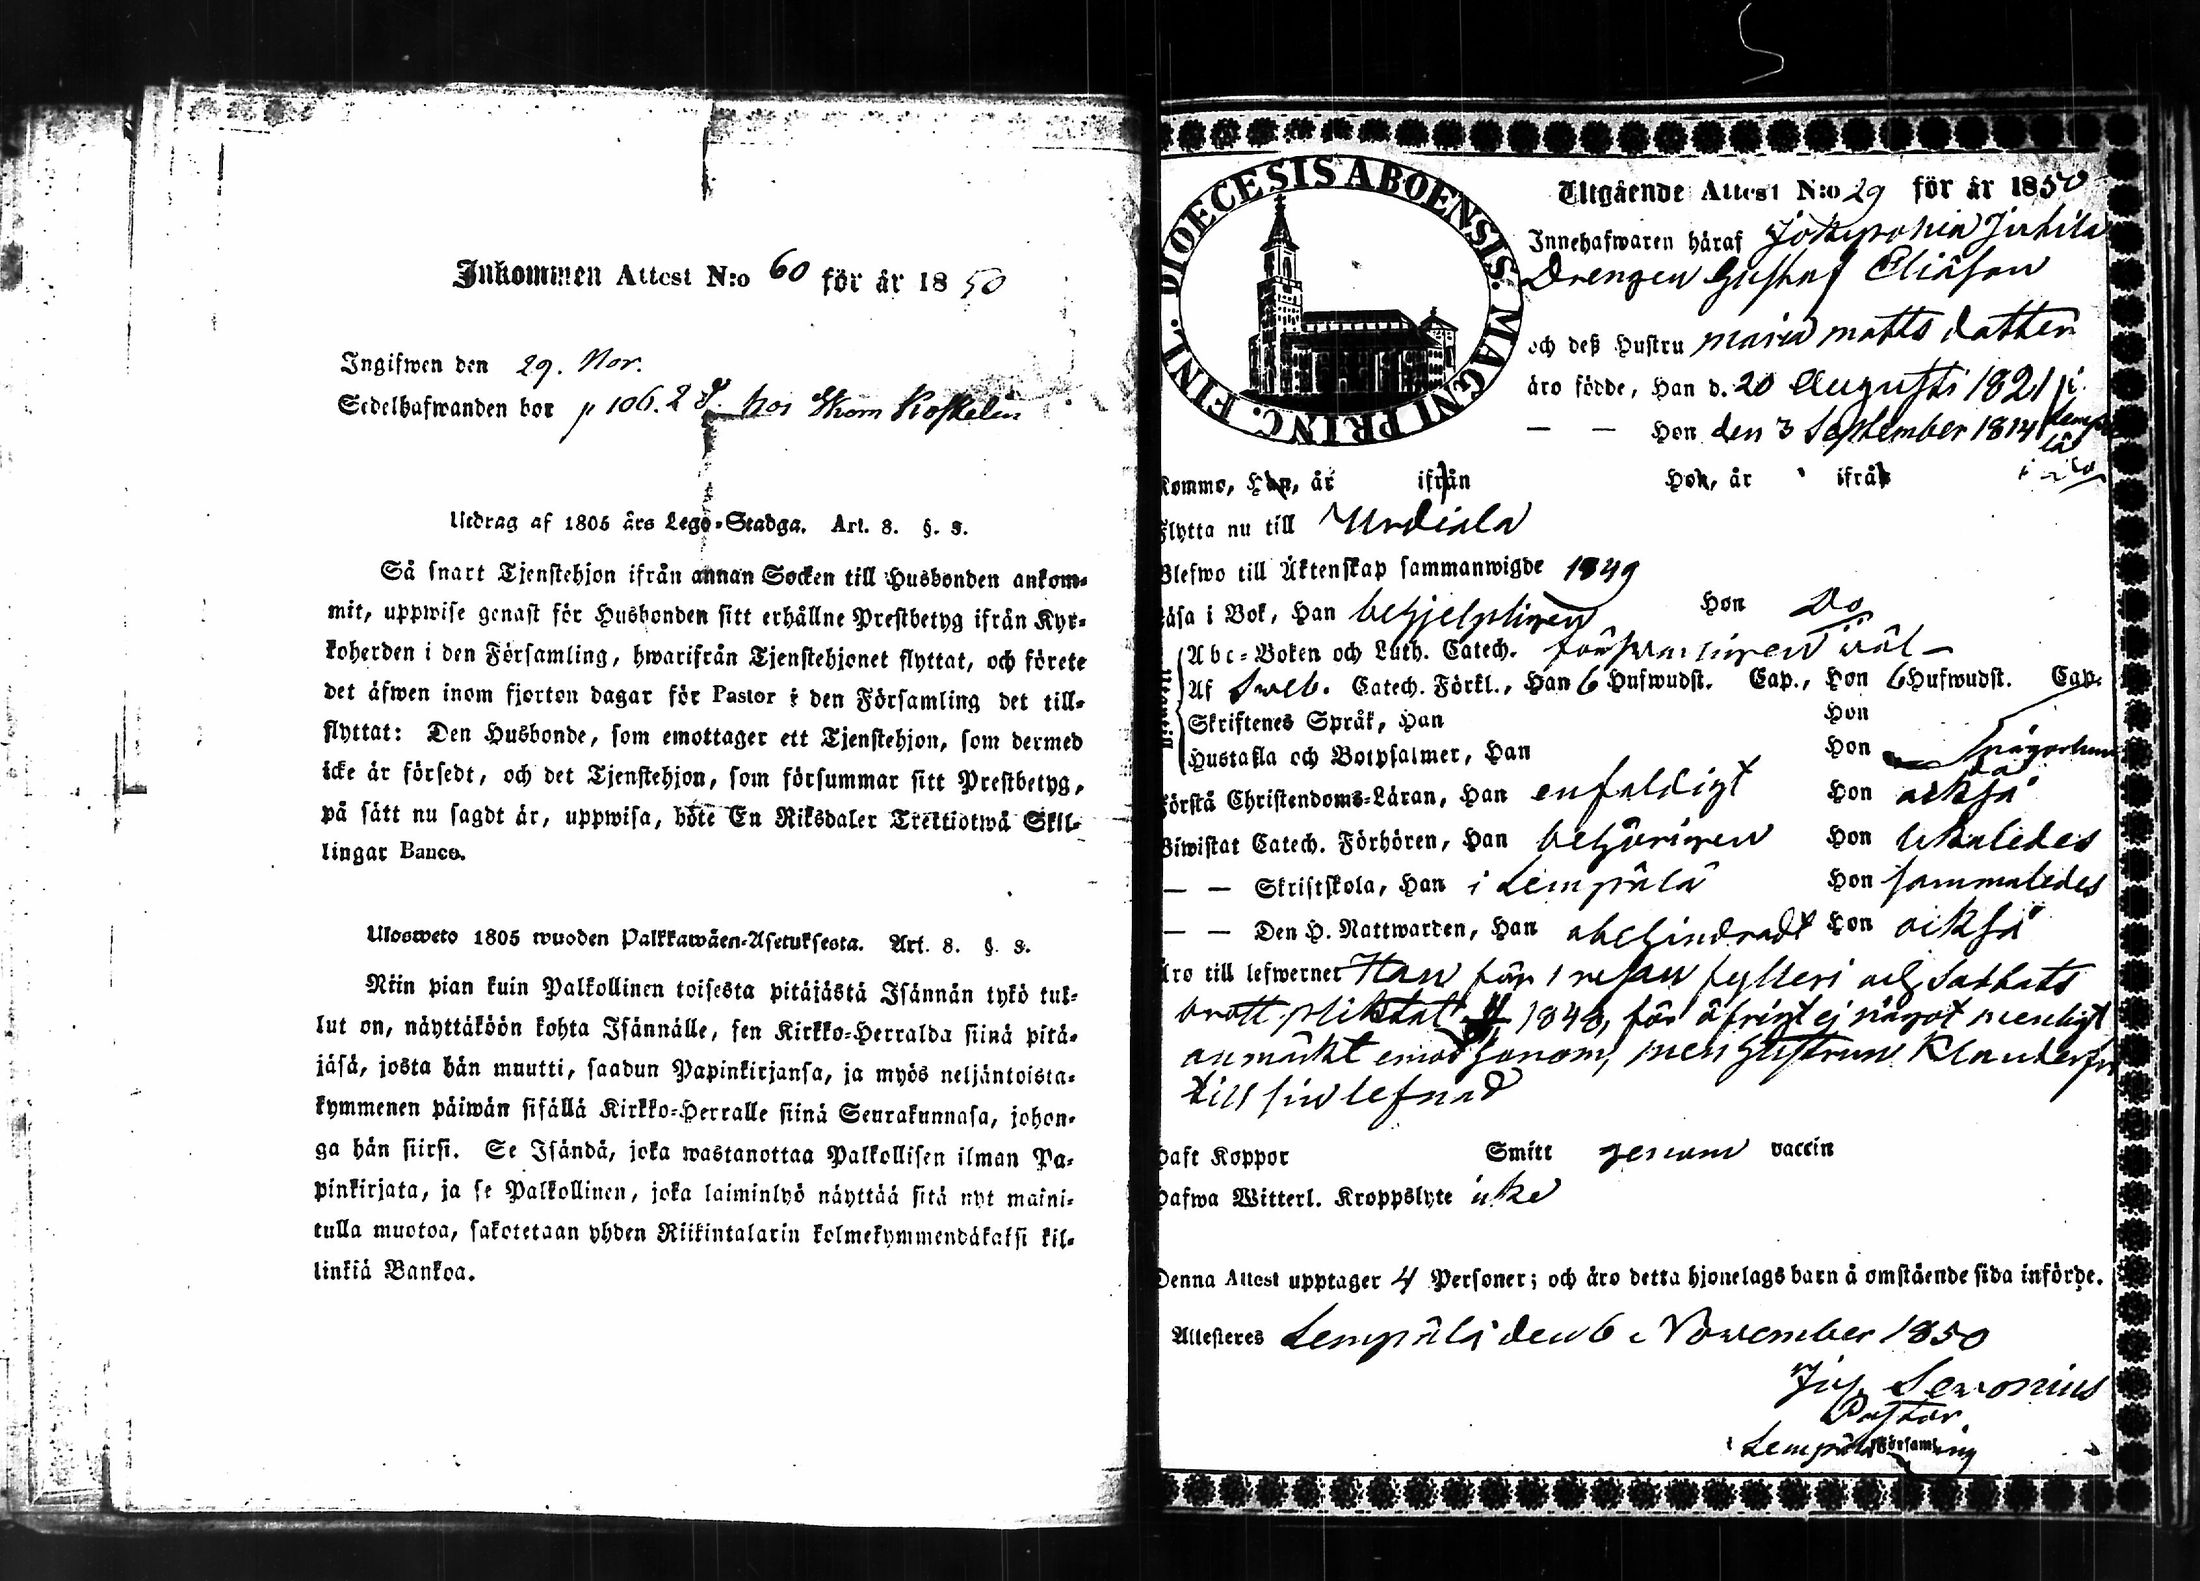 Inkommen Attest N:o 60 för år 1850
Ingifwen den 29. Nov.
Sedelhafwanden bor p 106. 2 hos Skom Koskelin
Utdrag af 1805 års Lego-Stadga. Art. 8. §. 8.
Så snart Tjenstehjon ifrån annan Socken till Husbonden ankom-
mit, uppwise genast för Husbonden sitt erhållne Prestbetyg ifrån Kyr-
koherden i den Församling, hwarifrån Tjenstehjonet flyttat, och förete
det äfwen inom fjorton dagar för Pastor i den Församling det till-
flyttat: Den Husbonde, som emottager ett Tjenstehjon, som dermed
icke är försedt, och det Tjenstehjon, som försummar sitt Prestbetyg,
på sätt nu sagdt är, uppwisa, böte En Riksdaler Trettiotwå Skil-
lingar Banco.
Ulosweto 1805 wuoden Palkkawäen-Asetuksesta. Art. 8. §. 8.
Niin pian kuin Palkollinen toisesta pitäjästä Isännän tykö tul-
lut on, näyttäköön kohta Isännälle, sen Kirkko-Herralda siinä pitä-
jäsä, josta hän muutti, saadun Papinkirjansa, ja myös neljäntoista-
kymmenen päiwän sisällä Kirkko-Herralle siinä Seurakunnasa, johon-
ga hän siirsi. Se Isändä, joka wastanottaa Palkollisen ilman Pa-
pinkirjata, ja se Palkollinen, joka laiminlyö näyttää sitä nyt maini-
tulla muotoa, sakotetaan yhden Riikintalarin kolmekymmendäkaksi kil-
linkiä Bankoa.
DIOECESIS ABOENSIS. MAGNI PRINC. FINL.
Utgående Attest N:o 29 för år 1850
Innehafwaren häraf
Drengen Gustaf Eliäson
och deß Hustru Maria Matts datter
äro födde, Han d. 20 Augusti 1821 i
— — Hon den 3 September 1814 Lempälä
Komme, Han, år ifrån Hon, år ifrån
Flytta nu till Urdiala
Blefwo till Äktenskap sammanwigde 1849
Läsa i Bok, Han behjelpligen Hon Do
Abc-Boken och Luth. Catech. förswarligen wäl
Af Sweb. Catech. Förkl., Han 6 Hufwudst. Cap., Hon 6 Hufwudst. Cap.
Skriftenes Språk, Han Hon
Hustafla och Botpsalmer, Han Hon någorlunda
Förstå Christendoms-Läran, Han enfaldigt Hon också
Biwistat Catech. Förhören, Han behörigen Hon likaledes
— — Skriftskola, Han i Lempälä Hon sammaledes
— — Den H. Nattwarden, Han obehindradt Hon också
Äro till lefwernet Han för 1 resan fylleri och Sabbats
brott pliktat 1848, för öfrigt ej något menligt
anmärkt emot honom, men hustrun klander
till sin lefnad
Haft Koppor Smitt genom vaccin
Hafwa Witterl. Kroppslyte icke
Denna Attest upptager 4 Personer; och äro detta hjonelags barn å omstående sida införde.
Attesteres Lempälä den 6 November 1850
Jos. Levonius
Pastor
i Lempälä Församling